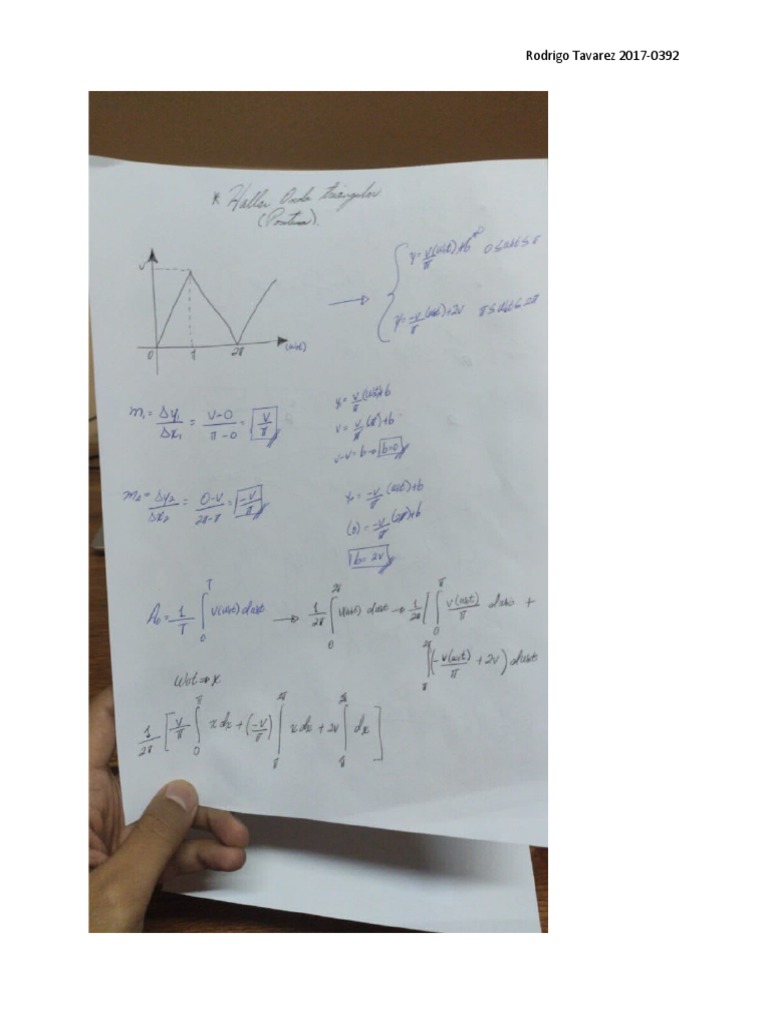 Rodrigo Tavarez 2017-0392
* Hallar Onda triangular
(Positiva).
V
0 π 2π (wot)
y = V/π (wot) + b 0 ≤ wot ≤ π
y = -V/π (wot) + 2V π ≤ wot ≤ 2π
m₁ = Δy₁/Δx₁ = V-0/π-0 = V/π
y = V/π (wot) + b
V = V/π (π) + b
V-V = b → b=0
m₂ = Δy₂/Δx₂ = 0-V/2π-π = -V/π
y₂ = -V/π (wot) + b
(0) = -V/π (2π) + b
b = 2V
A₀ = 1/T ∫₀ᵀ V(wot) dwot → 1/2π ∫₀^2π V(wot) dwot → 1/2π [∫₀^π V(wot)/π dwot +
∫π^2π (-V(wot)/π + 2V) dwot
wot = x
1/2π [V/π ∫₀^π x dx + (-V/π) ∫π^2π x dx + 2V ∫π^2π dx]